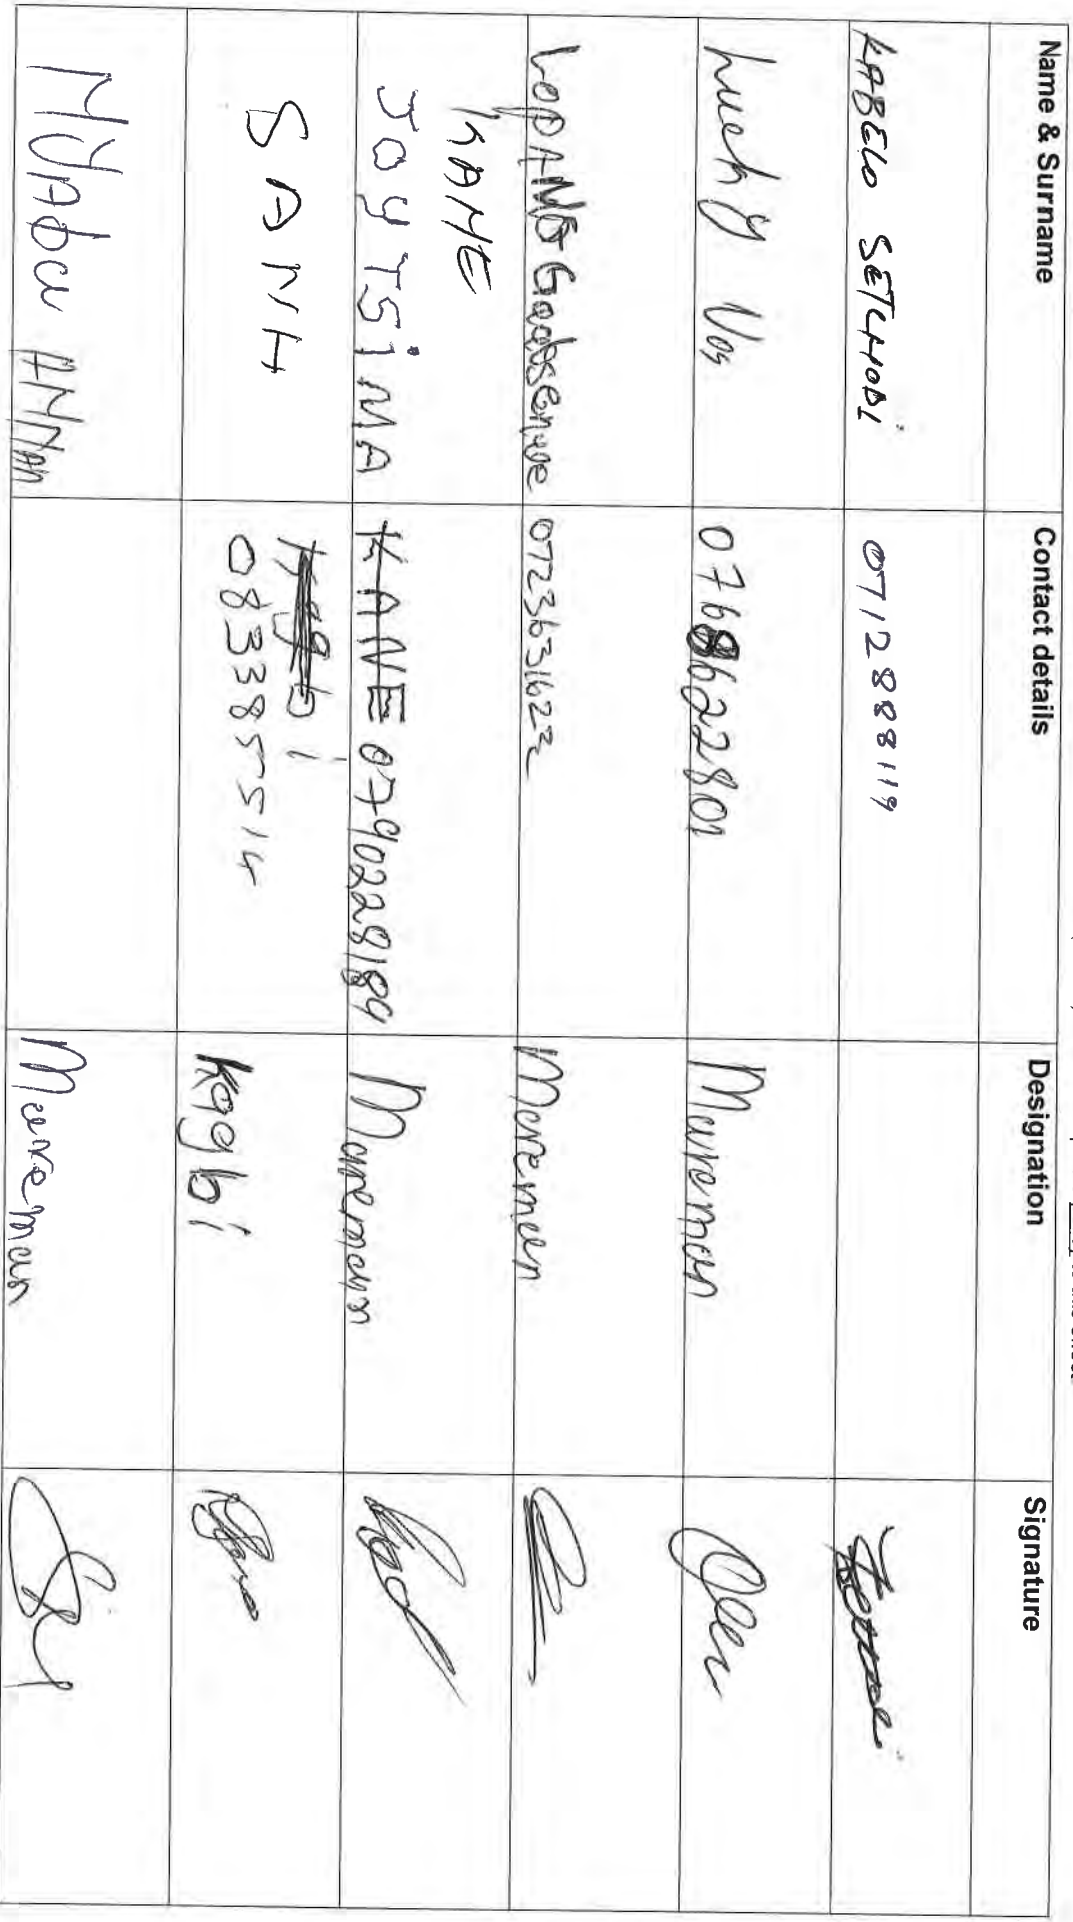 Name & Surname Contact details Designation Signature
KABELO SETLHODI 0712888119
Lucky Vos 0768622801 Mareman
LOPANG Gaobsenwe 0723631622 Maremen
KANE
JOY TSiMA KANE 0790228189 Maremam
SANH Kggbi
0833855514 kggbi
ANNAH Mareman